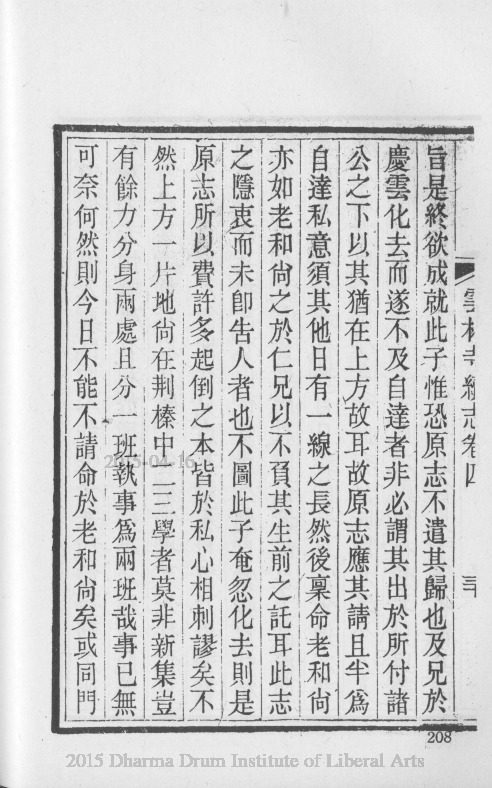 旨是終欲成就此子惟恐原志不遣其歸也及兄於
慶雲化去而遂不及自達者非必謂其出於所付諸
公之下以其猶在上方故耳故原志應其請且半爲
自達私意須其他日有一線之長然後稟命老和尙
亦如老和尙之於仁兄以不負其生前之託耳此志
之隱衷而未卽告人者也不圖此子奄忽化去則是
原志所以費許多起倒之本皆於私心相刺謬矣不
然上方一片地尙在荆榛中二三學者莫非新集豈
有餘力分身兩處且分一班執事爲兩班哉事已無
可奈何然則今日不能不請命於老和尙矣或同門
雲林寺續志卷四
三
208
2015-04-16
2015 Dharma Drum Institute of Liberal Arts